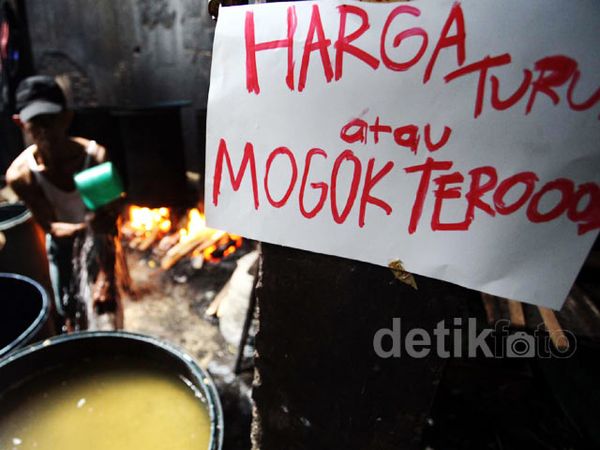 HARGA TURU
atau
MOGOK TEROOOS
detikfoto